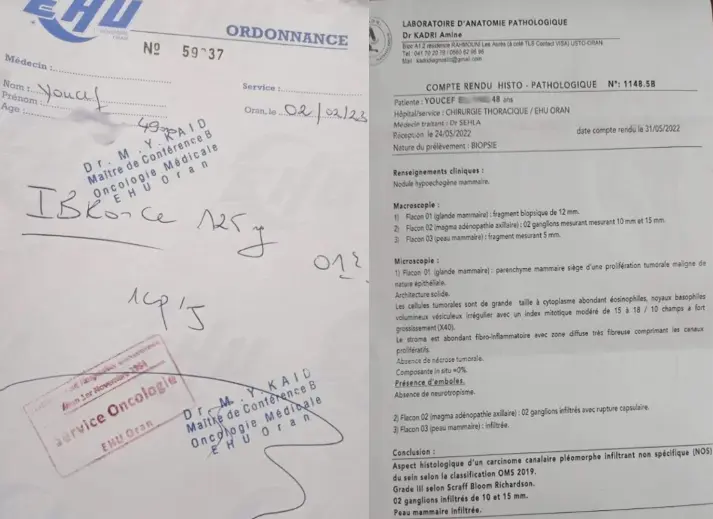 EHU
ORDONNANCE
Nº 59 37
Médecin :
Nom : Youcef
Service :
Prénom :
Oran, le 02/02/23
Age :
49
Dr. M. Y. KAID
Maître de Conférence B
Oncologie Médicale
EHU Oran
125
1cp/J
1er Novembre
Service Oncologie
EHU Oran
Dr. M. Y. KAID
Maître de Conférence B
Oncologie Médicale
EHU Oran
LABORATOIRE D'ANATOMIE PATHOLOGIQUE
Dr KADRI Amine
COMPTE RENDU HISTO - PATHOLOGIQUE N°: 1148.SB
Patiente : YOUCEF 48 ans
Hôpital/service : CHIRURGIE THORACIQUE / EHU ORAN
Médecin traitant : Dr SEHLA
Réception le 24/05/2022 date compte rendu le 31/05/2022
Nature du prélèvement : BIOPSIE
Renseignements cliniques :
Nodule hypoechogène mammaire.
Macroscopie :
1) Flacon 01 (glande mammaire) : fragment biopsique de 12 mm.
2) Flacon 02 (magma adénopathie axillaire) : 02 ganglions mesurant mesurant 10 mm et 15 mm.
3) Flacon 03 (peau mammaire) : fragment mesurant 5 mm.
Microscopie :
1) Flacon 01 (glande mammaire) : parenchyme mammaire siège d'une prolifération tumorale maligne de
nature épithéliale.
Architecture solide.
Les cellules tumorales sont de grande taille à cytoplasme abondant éosinophiles, noyaux basophiles
volumineux vésiculeux irrégulier avec un index mitotique modéré de 15 à 18 / 10 champs a fort
grossissement (X40).
Le stroma est abondant fibro-inflammatoire avec zone diffuse très fibreuse comprimant les canaux
prolifératifs.
Absence de nécrose tumorale.
Composante in situ =0%.
Présence d'emboles.
Absence de neurotropisme.
2) Flacon 02 (magma adénopathie axillaire) : 02 ganglions infiltrés avec rupture capsulaire.
3) Flacon 03 (peau mammaire) : infiltrée.
Conclusion :
Aspect histologique d'un carcinome canalaire pléomorphe infiltrant non spécifique (NOS)
du sein selon la classification OMS 2019.
Grade III selon Scraff Bloom Richardson.
02 ganglions infiltrés de 10 et 15 mm.
Peau mammaire infiltrée.